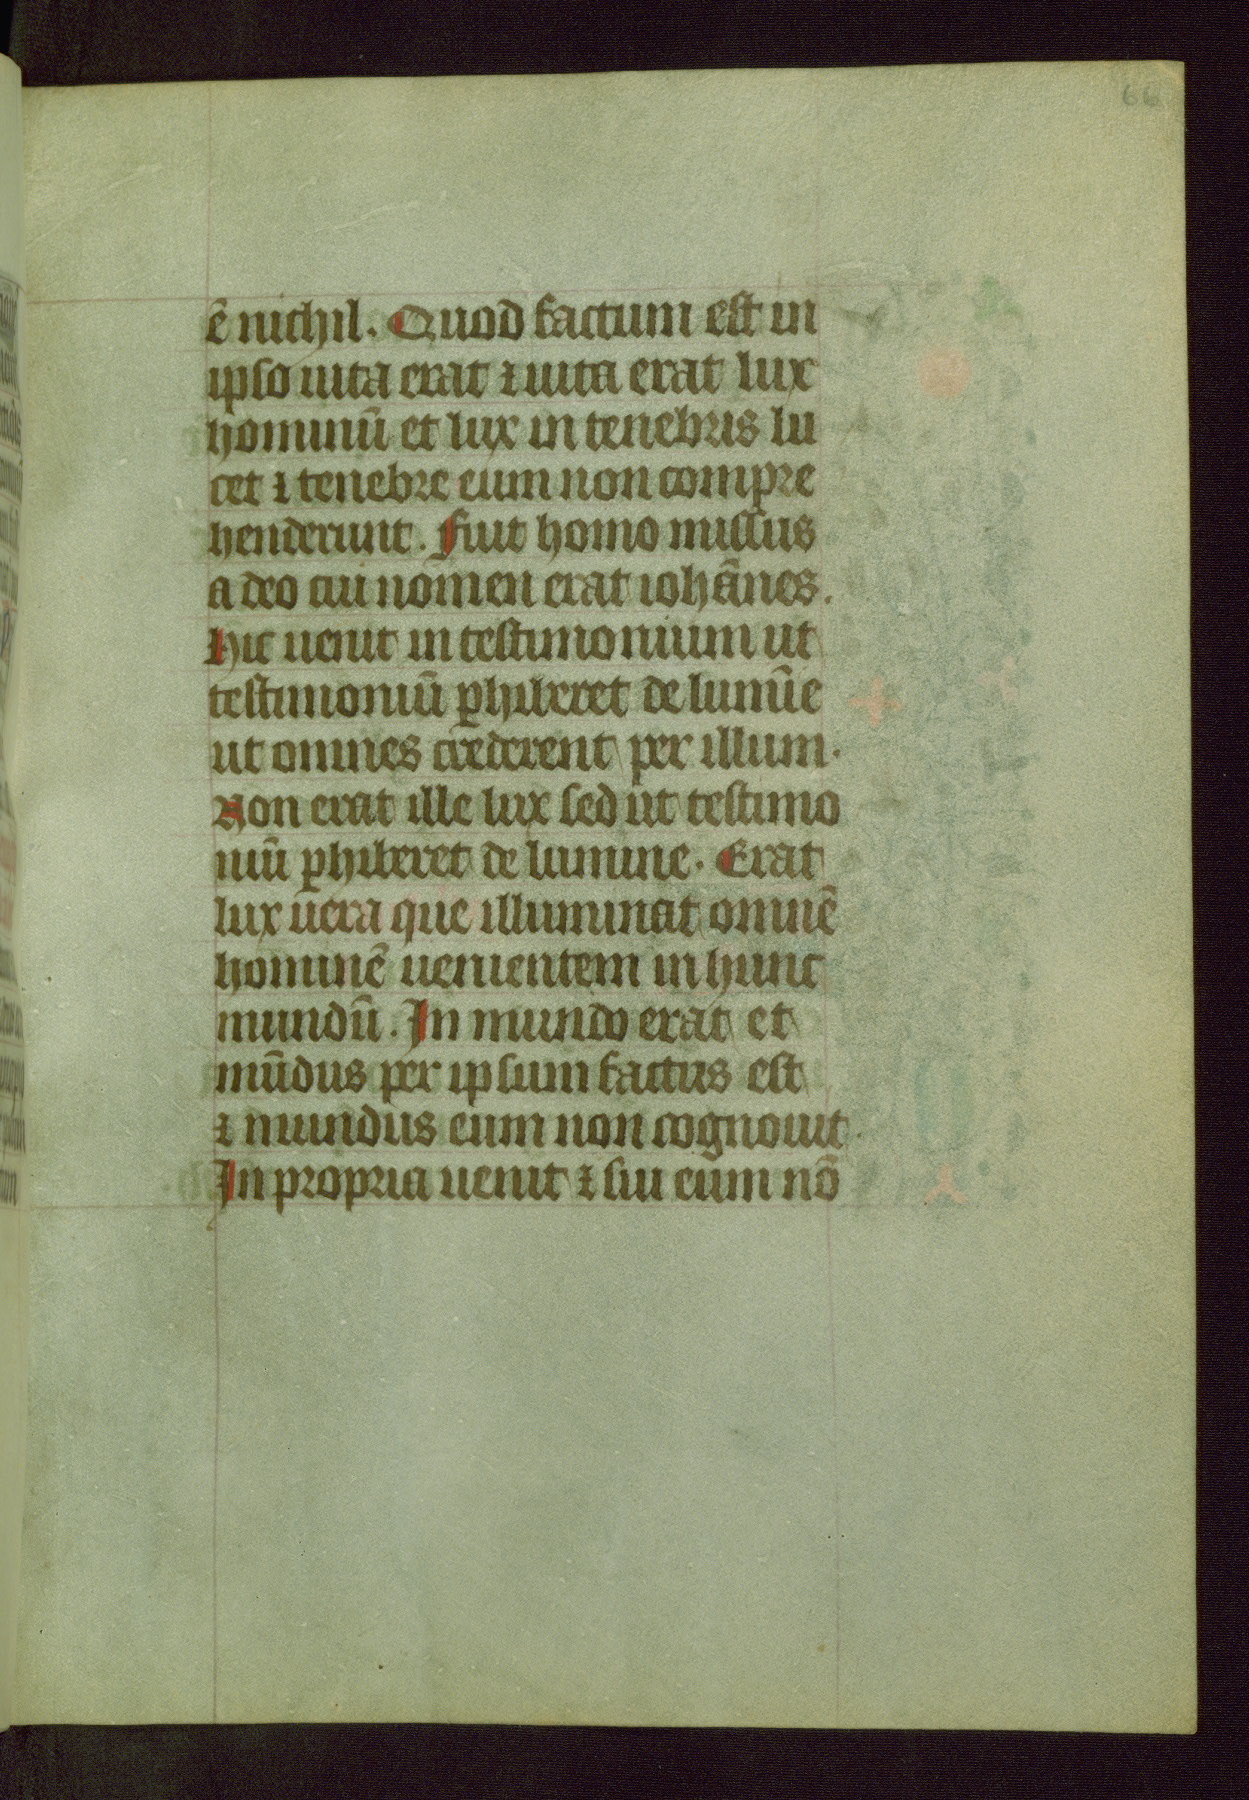 66
ē nichil. Quod factum est in
ipso uita erat ⁊ uita erat lux
hominū et lux in tenebris lu
cet ⁊ tenebre eum non compre
henderunt. Fuit homo missus
a deo cui nomen erat iohānes.
Hic uenit in testimonium ut
testimoniū ꝑhiberet de lumīe
ut omnes crederent per illum.
Non erat ille lux sed ut testimo
niū ꝑhiberet de lumine. Erat
lux uera que illuminat omnē
hominē uenientem in hunc
mundū. In mundo erat et
mūdus per ipsum factus est
⁊ mundus eum non cognouit.
In propria uenit ⁊ sui eum nō